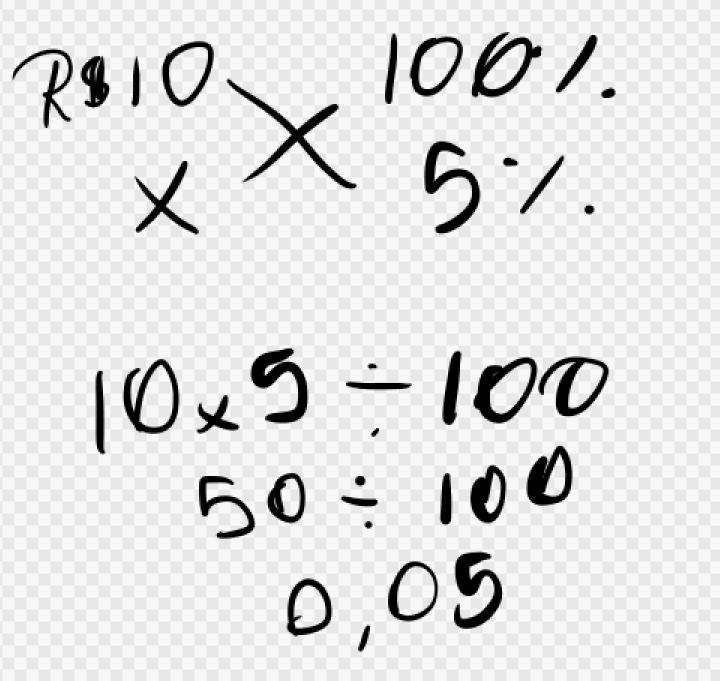 R$10 100%
x 5%
10x5÷100
50÷100
0,05